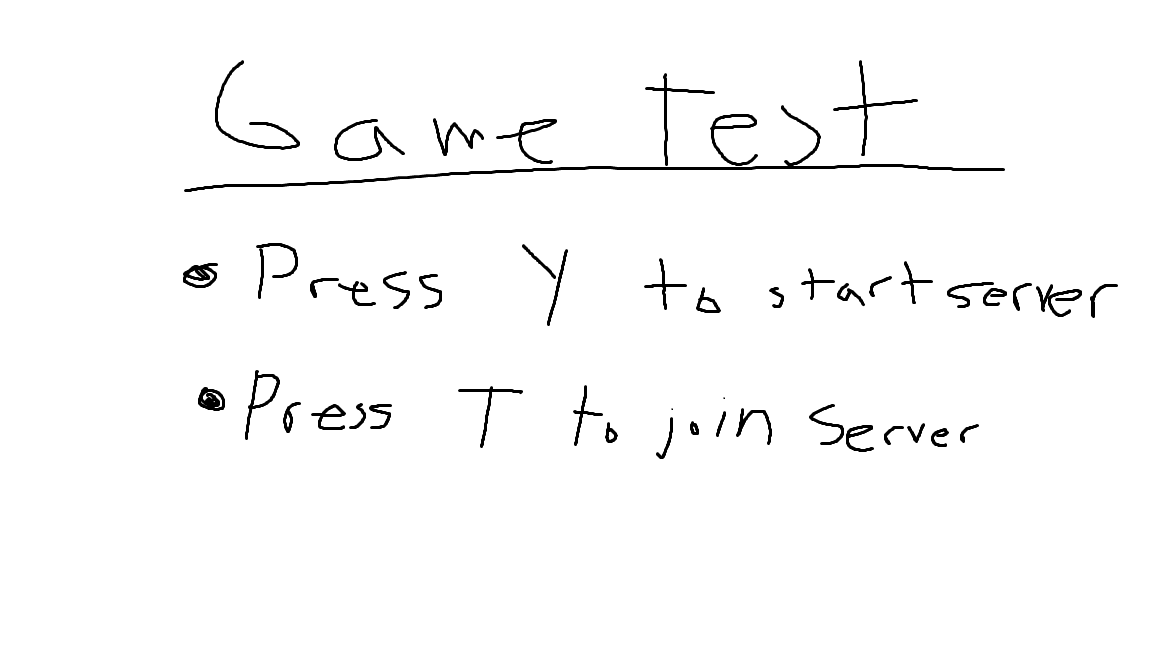 Game Test
• Press Y to start server
• Press T to join Server